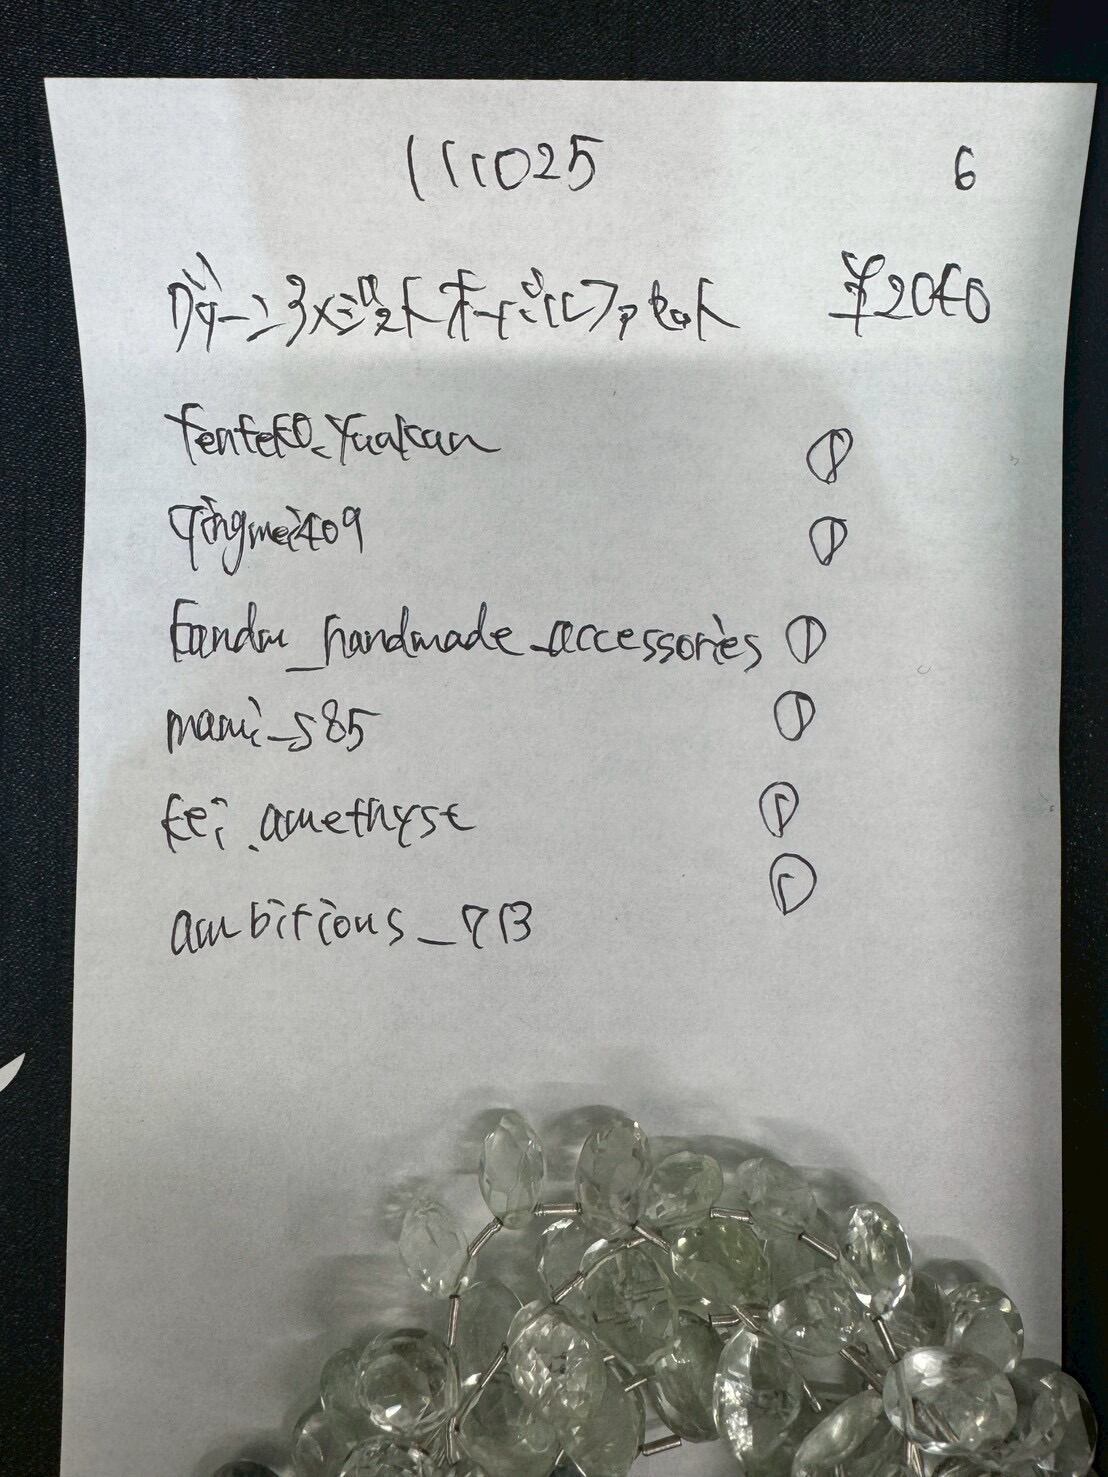 111025 6
グリーンアメジスト オーバルファセット ¥2040
tenteko_yuakun
qingmei409
kandm_handmade_accessories ①
mami_s85 ①
kei.amethyst ①
ambitious_713 ①